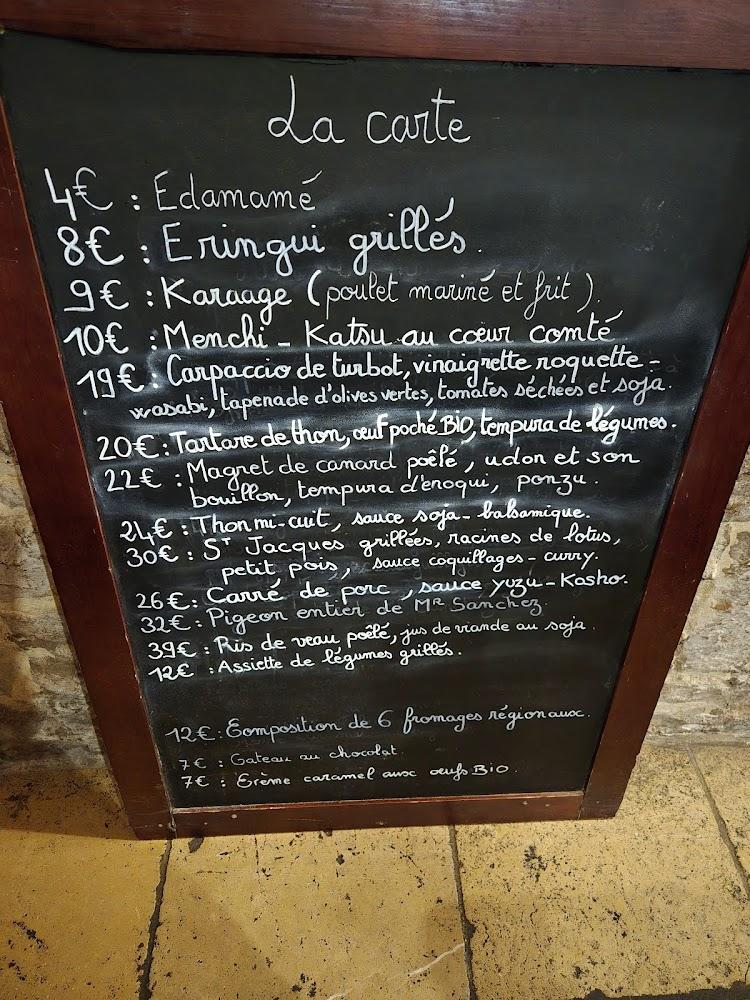 La carte
4€ : Edamamé
8€ : Eringui grillés.
9€ : Karaage (poulet mariné et frit).
10€ : Menchi - Katsu au cœur comté
19€ : Carpaccio de turbot, vinaigrette roquette -
wasabi, tapenade d'olives vertes, tomates séchées et soja.
20€ : Tartare de thon, œuf poché BIO, tempura de légumes.
22€ : Magret de canard poêlé, udon et son
bouillon, tempura d'enoqui, ponzu.
24€ : Thon mi-cuit, sauce soja - balsamique.
30€ : ST Jacques grillées, racines de lotus,
petit pois, sauce coquillages - curry.
26€ : Carré de porc, sauce yuzu - Kosho.
32€ : Pigeon entier de MR Sanchez.
39€ : Ris de veau poêlé, jus de viande au soja.
12€ : Assiette de légumes grillés.
12€ : Composition de 6 fromages régionaux.
7€ : Gateau au chocolat.
7€ : Crème caramel aux œufs Bio.